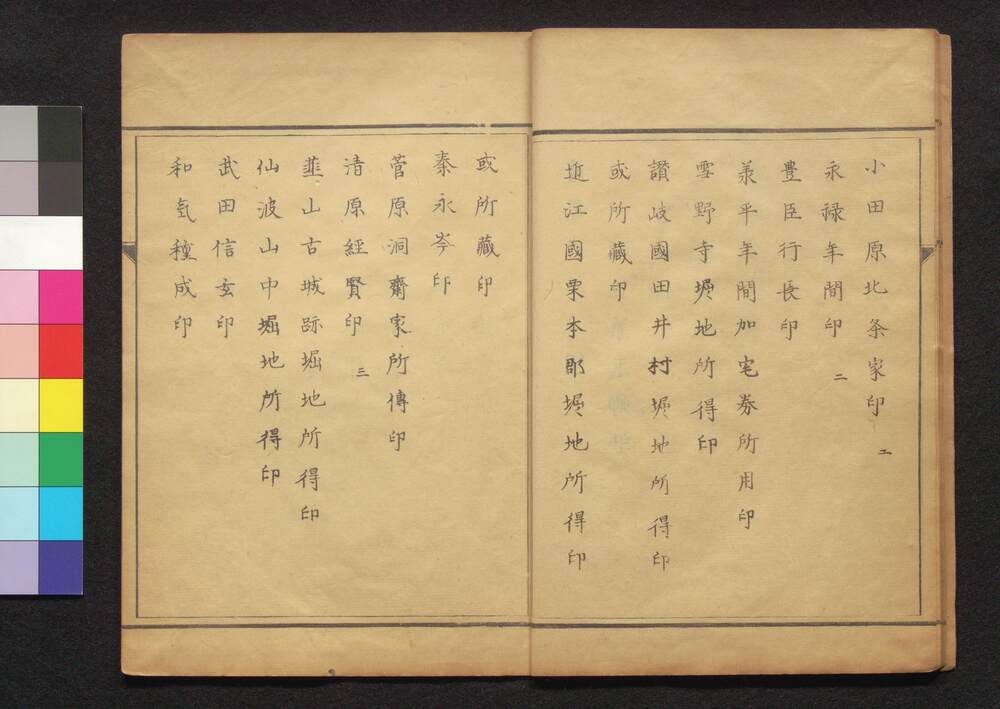 小田原北条家印 二
永禄年間印 二
豊臣行長印
承平年間加宅券所用印
雪野寺堀地所得印
讃岐國田井村堀地所得印
或所藏印
近江國栗本郡堀地所得印
或所藏印
秦永岑印
菅原洞齋家所傳印
清原經賢印 三
韮山古城跡堀地所得印
仙波山中堀地所得印
武田信玄印
和氣種成印